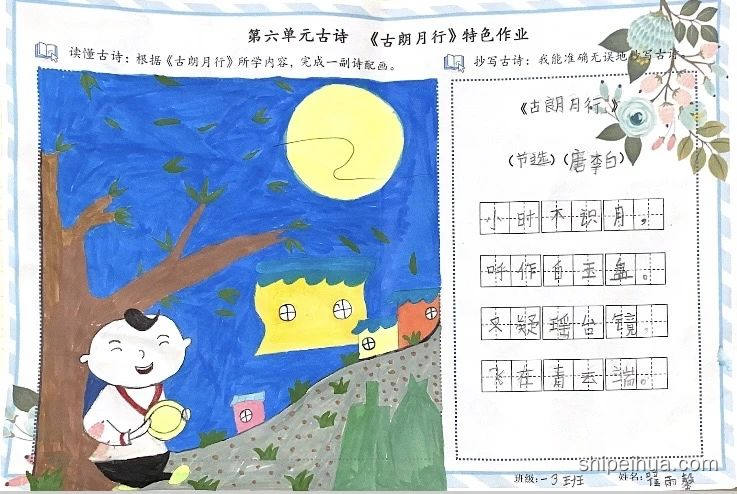 第六单元古诗 《古朗月行》特色作业
读懂古诗：根据《古朗月行》所学内容，完成一副诗配画。
抄写古诗：我能准确无误地抄写古诗
《古朗月行》
（节选）（唐李白）
小时不识月，
呼作白玉盘。
又疑瑶台镜，
飞在青云端。
班级：一3班 姓名：雨馨
shipeihua.com